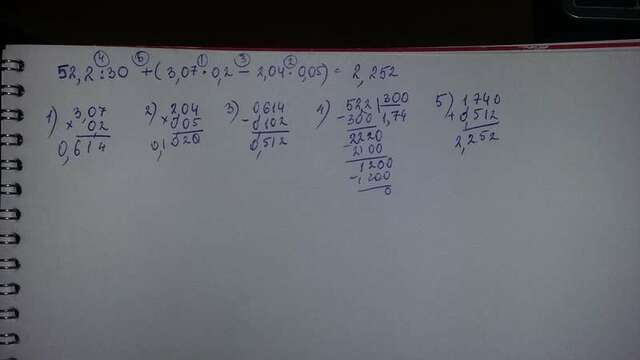 ④ ⑤ ① ③ ②
52,2:30 + (3,07·0,2 - 2,04·0,05) = 2,252
1) 3,07 2) 204 3) 0,614 4) 522 | 300 5) 1,740
× 02 × 005 - 0,102 - 300 1,74 + 0,512
0,614 0,1020 0,512 2220 2,252
- 2100
1200
- 1200
0